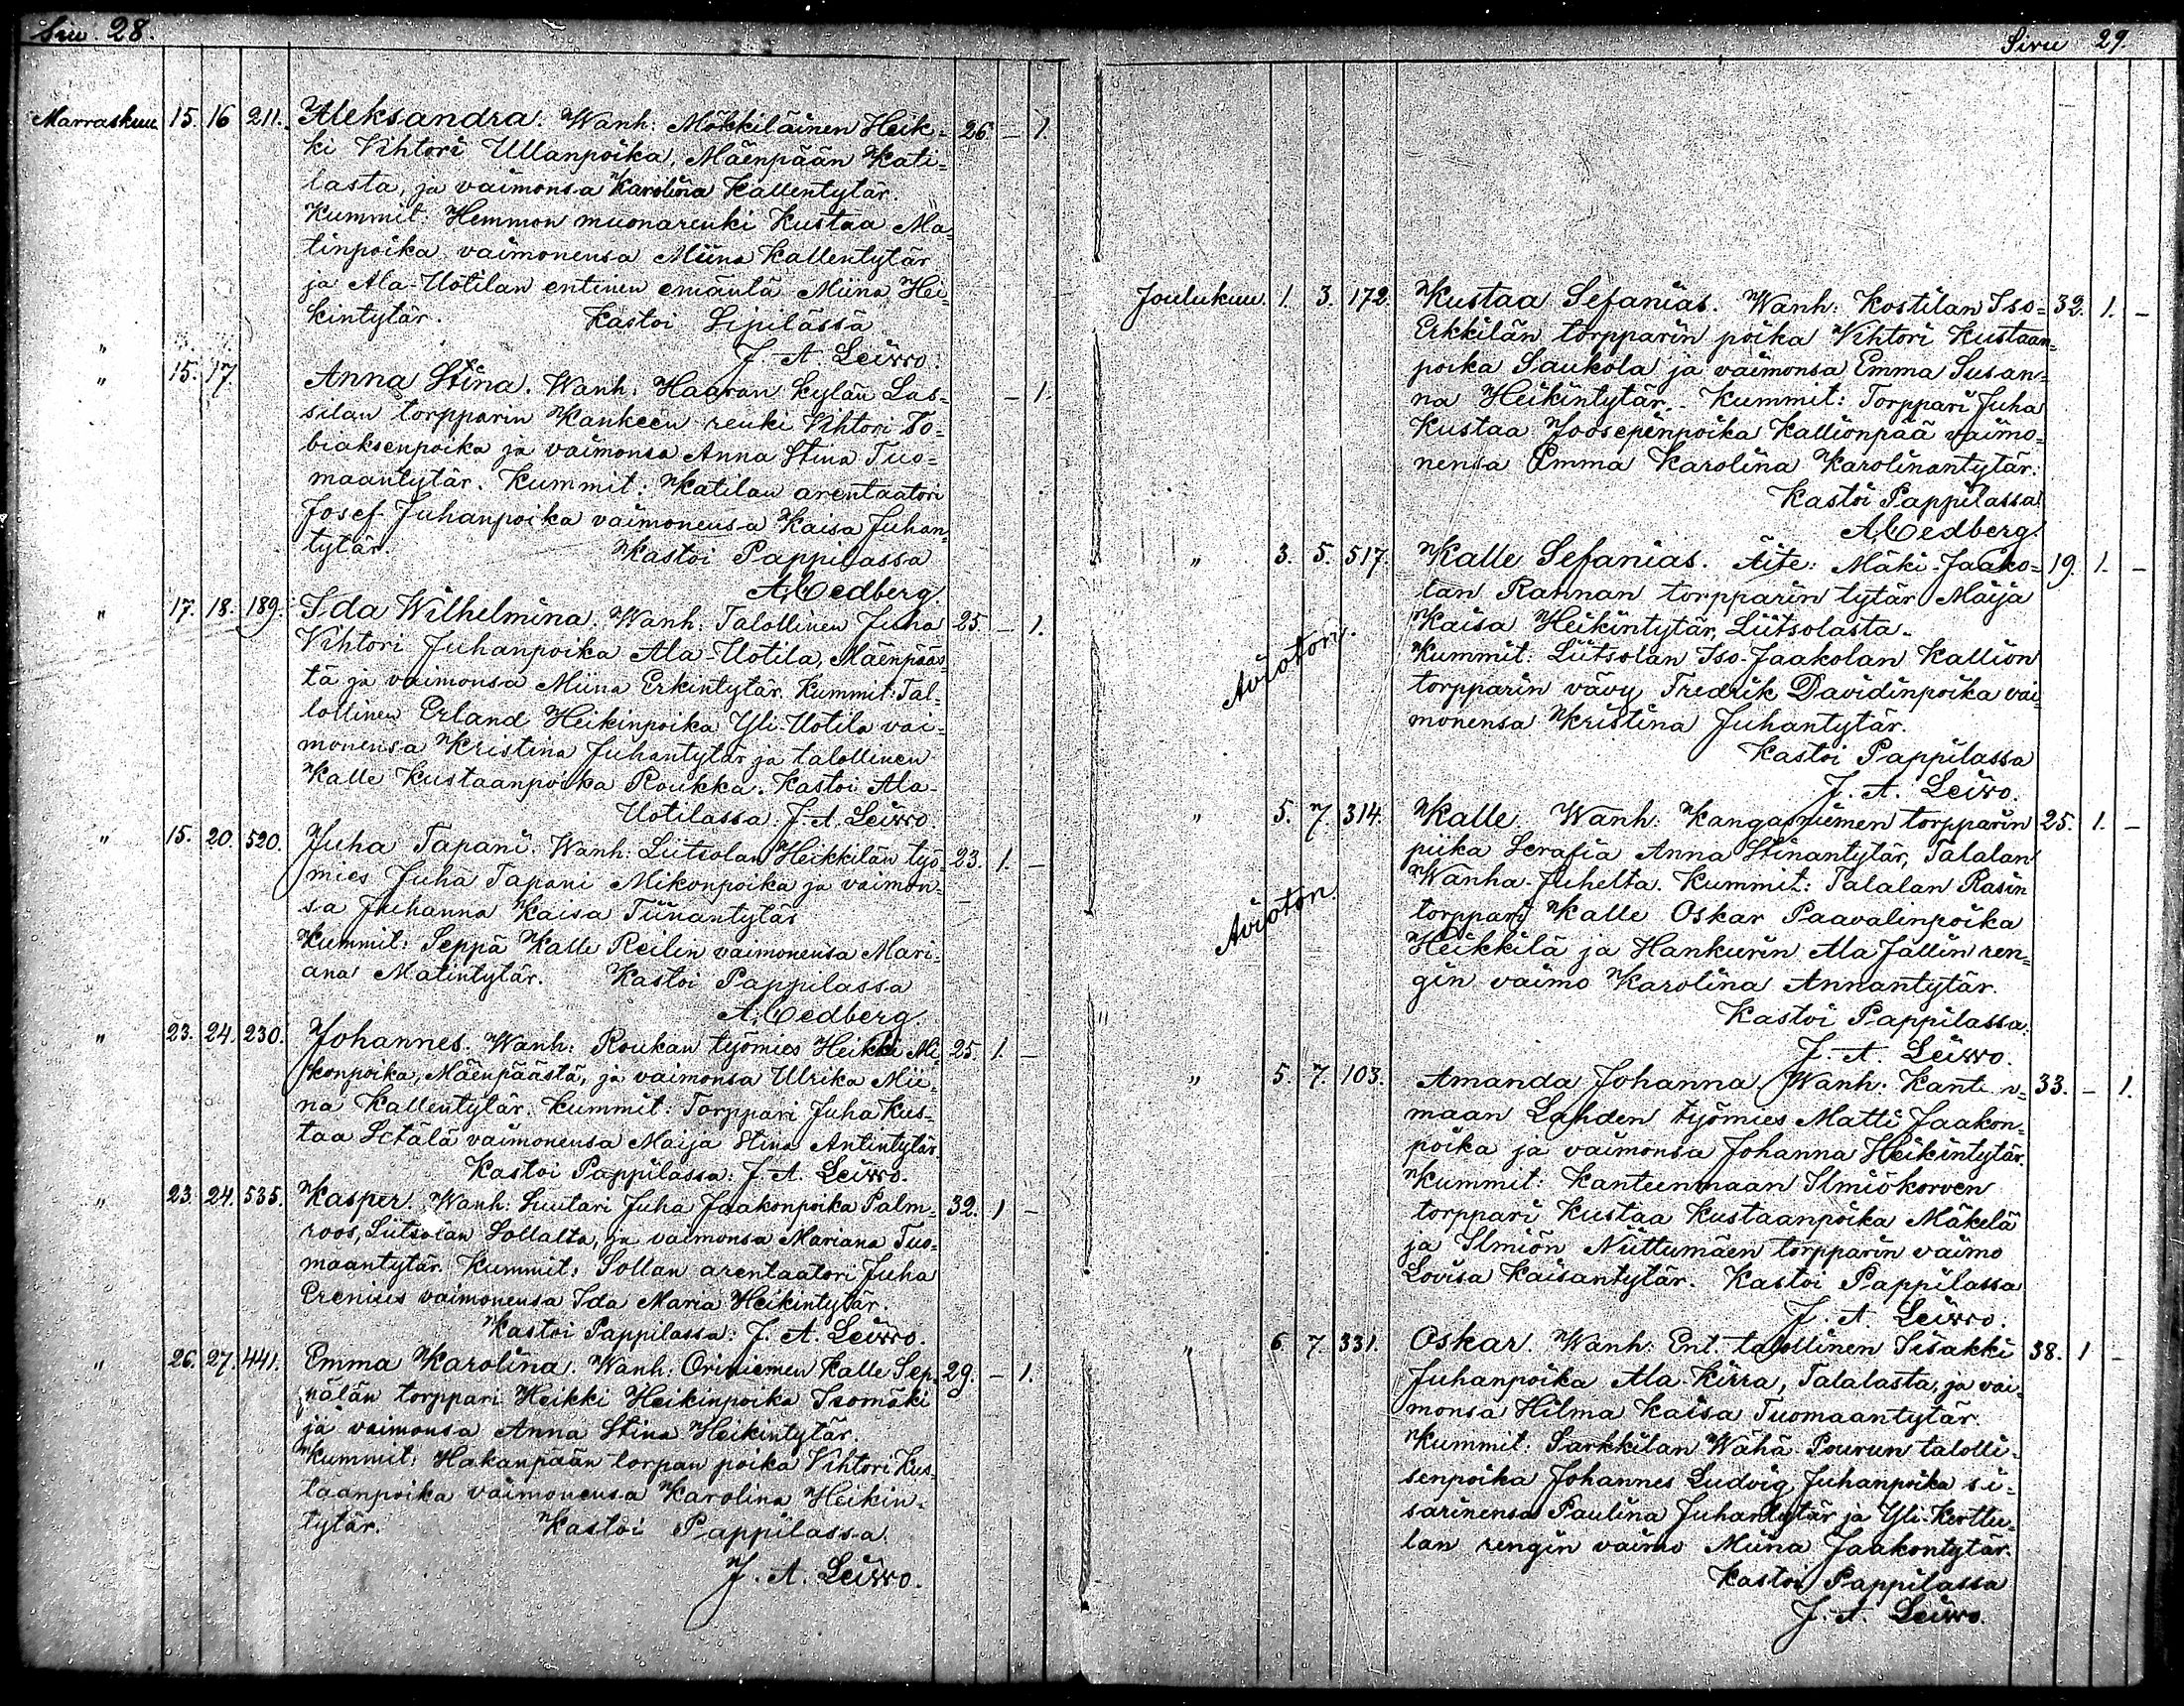 Sivu 28.
Marraskuu 15. 16 211. Aleksandra. Wanh: Mökkiläinen Heik= 26 — 1.
ki Vihtori Ullanpoika, Mäenpään Kati=
lasta, ja vaimonsa Karolina Kallentytär.
Kummit: Hemmon muonarenki Kustaa Ma=
tinpoika vaimonensa Miina Kallentytär
ja Ala-Uotilan entinen emäntä Miina Hei=
kintytär. Kastoi Sipilässä
J. A. Leiwo.
" 15. 17. Anna Stina. Wanh: Haaran kylän Las= — 1.
silan torpparin Kankeen renki Vihtori To=
biaksenpoika ja vaimonsa Anna Stina Tuo=
maantytär. Kummit: Katilan arentaatori
Josef Juhanpoika vaimonensa Kaisa Juhan=
tytär. Kastoi Pappilassa
A. Cedberg.
" 17. 18. 189. Ida Wilhelmina. Wanh: Talollinen Juha 25. — 1.
Vihtori Juhanpoika Ala-Uotila, Mäenpääs=
tä ja vaimonsa Miina Erkintytär. Kummit: Tal=
lollinen Erland Heikinpoika Yli-Uotila vai=
monensa Kristina Juhantytär ja talollinen
Kalle Kustaanpoika Roukka. Kastoi Ala-
Uotilassa. J. A. Leiwo.
" 15. 20. 520. Juha Tapani. Wanh: Liitsolan Heikkilän työ= 23. 1. —
mies Juha Tapani Mikonpoika ja vaimon=
sa Juhanna Kaisa Tiinantytär
Kummit: Seppä Kalle Reilin vaimonensa Mari=
ana Matintytär. Kastoi Pappilassa
A. Cedberg.
" 23. 24. 230. Johannes. Wanh: Roukan työmies Heikki Mi= 25. 1. —
konpoika, Mäenpäästä, ja vaimonsa Ulrika Mii=
na Kallentytär. Kummit: Torppari Juha Kus=
taa Setälä vaimonensa Maija Stina Antintytär.
Kastoi Pappilassa: J. A. Leiwo.
" 23. 24. 535. Kasper. Wanh: Suutari Juha Jaakonpoika Palm= 32. 1 —
roos, Liitsolan Sollalta, ja vaimonsa Mariana Tuo=
maantytär. Kummit: Sollan arentaatori Juha
Erenius vaimonensa Ida Maria Heikintytär.
Kastoi Pappilassa: J. A. Leiwo.
" 26. 27. 441. Emma Karolina. Wanh: Oriniemen Kalle Sep= 29. — 1.
pälän torppari Heikki Heikinpoika Isomäki
ja vaimonsa Anna Stina Heikintytär.
Kummit: Hakanpään torpan poika Vihtori Kus=
taanpoika vaimonensa Karolina Heikin=
tytär. Kastoi Pappilassa
J. A. Leiwo.
Sivu 29.
Joulukuu. 1. 3. 172. Kustaa Sefanias. Wanh: Kostilan Iso= 32. 1. —
Erkkilän torpparin poika Vihtori Kustaan=
poika Saukola ja vaimonsa Emma Susan=
na Heikintytär. Kummit: Torppari Juha
Kustaa Joosepinpoika Kallionpää vaimo=
nensa Emma Karolina Karolinantytär.
Kastoi Pappilassa
A. Cedberg.
" 3. 5. 517. Kalle Sefanias. Äite: Mäki-Jaako= 19. 1. —
lan Rannan torpparin tytär Maija
Avioton. Kaisa Heikintytär, Liitsolasta.
Kummit: Liitsolan Iso-Jaakolan Kallion
torpparin vävy Fredrik Davidinpoika vai=
monensa Kristina Juhantytär.
Kastoi Pappilassa
J. A. Leiwo.
" 5. 7. 314. Kalle. Wanh: Kangasniemen torpparin 25. 1. —
piika Serafia Anna Stinantytär, Talalan
Avioton. Wanha-Juhelta. Kummit: Talalan Rasin
torppari Kalle Oskar Paavalinpoika
Heikkilä ja Hankurin Ala Jallin ren=
gin vaimo Karolina Annantytär.
Kastoi Pappilassa.
J. A. Leiwo.
" 5. 7. 103. Amanda Johanna. Wanh: Kanteen= 33. — 1.
maan Lahden työmies Matti Jaakon=
poika ja vaimonsa Johanna Heikintytär.
Kummit: Kanteenmaan Ilmiökorven
torppari Kustaa Kustaanpoika Mäkelä
ja Ilmiön Niittumäen torpparin vaimo
Lovisa Kaisantytär. Kastoi Pappilassa
J. A. Leiwo.
" 6. 7. 331. Oskar. Wanh: Ent. talollinen Iisakki 38. 1 —
Juhanpoika Ala-Kirra, Talalasta, ja vai=
monsa Hilma Kaisa Tuomaantytär.
Kummit: Sarkkilan Wähä Pourun talolli=
senpoika Johannes Ludvig Juhanpoika si=
sarinensa Paulina Juhantytär ja Yli-Kerttu=
lan rengin vaimo Miina Jaakontytär.
Kastoi Pappilassa
J. A. Leiwo.